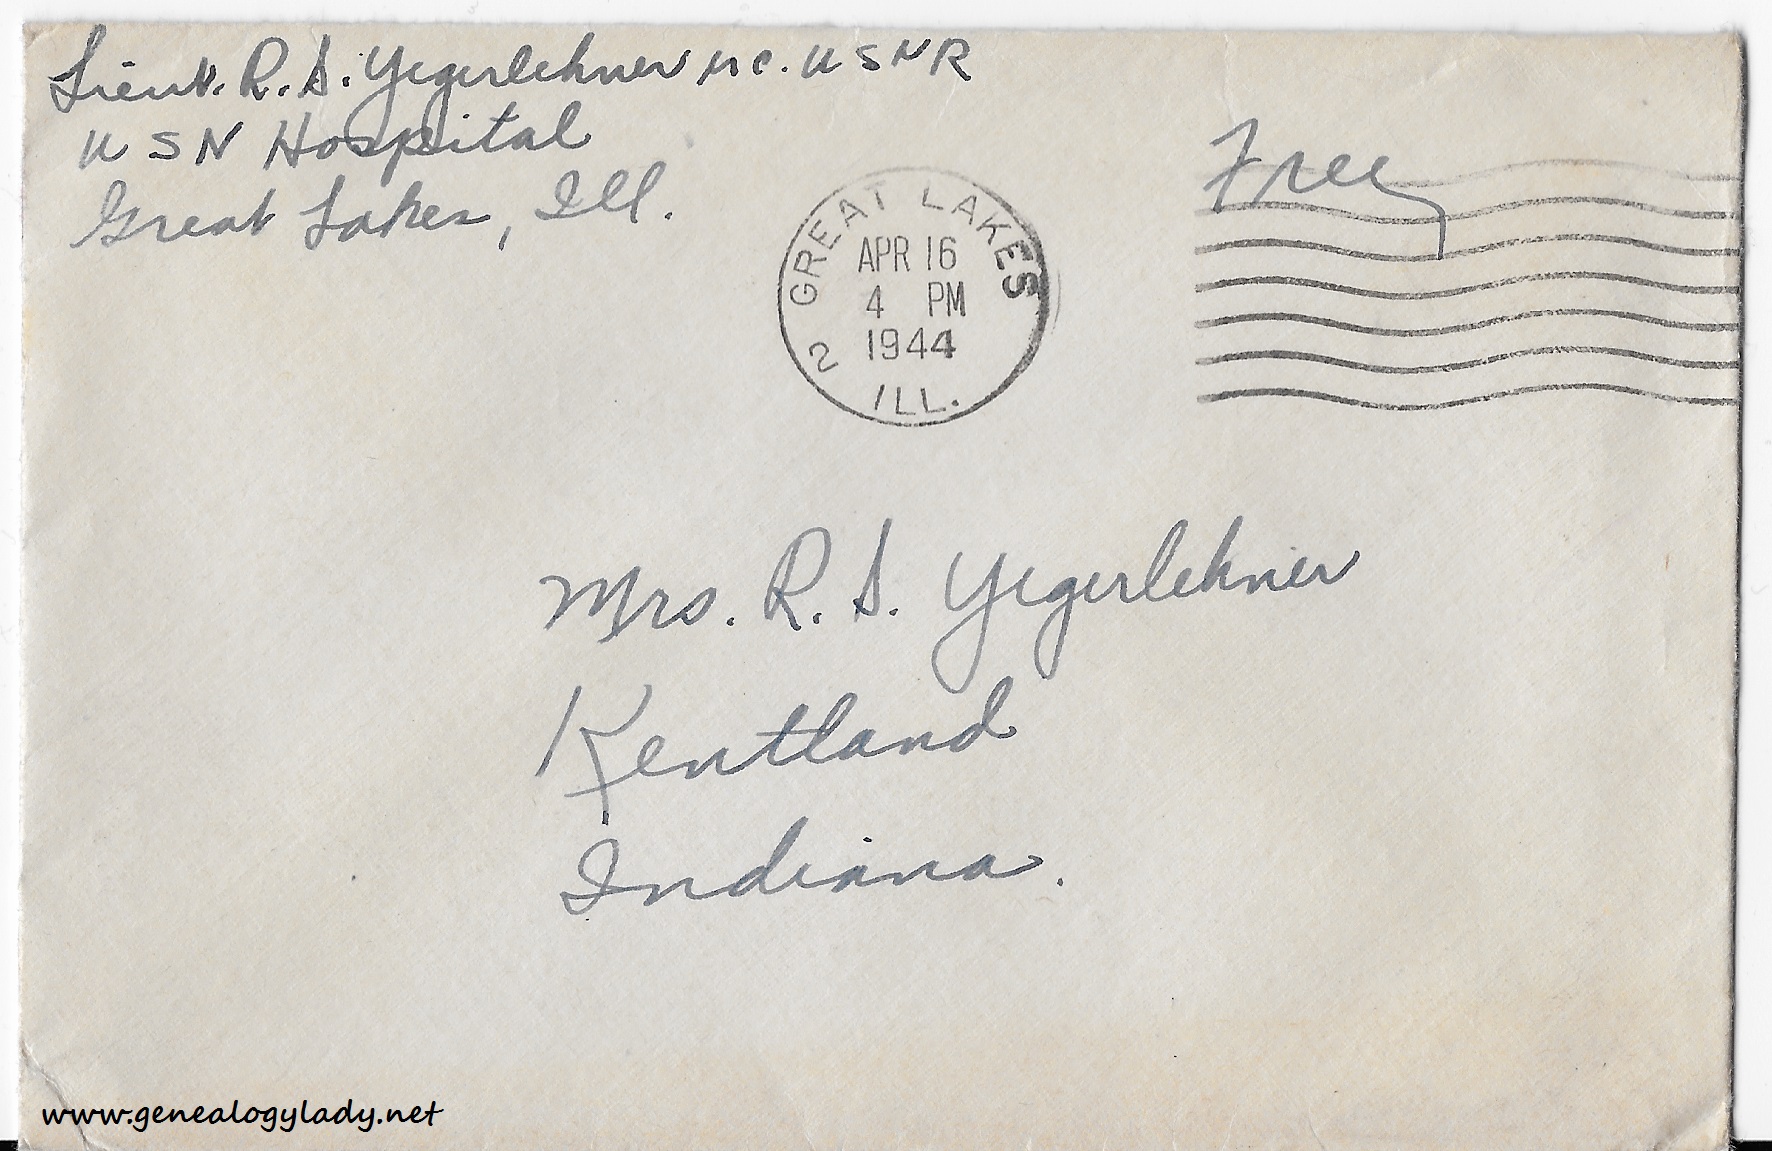 Lieut. R. S. Yegerlehner MC. USNR
USN Hospital
Great Lakes, Ill.
Free
GREAT LAKES
APR 16
4 PM
1944
2
ILL.
Mrs. R. S. Yegerlehner
Kentland
Indiana.
www.genealogylady.net